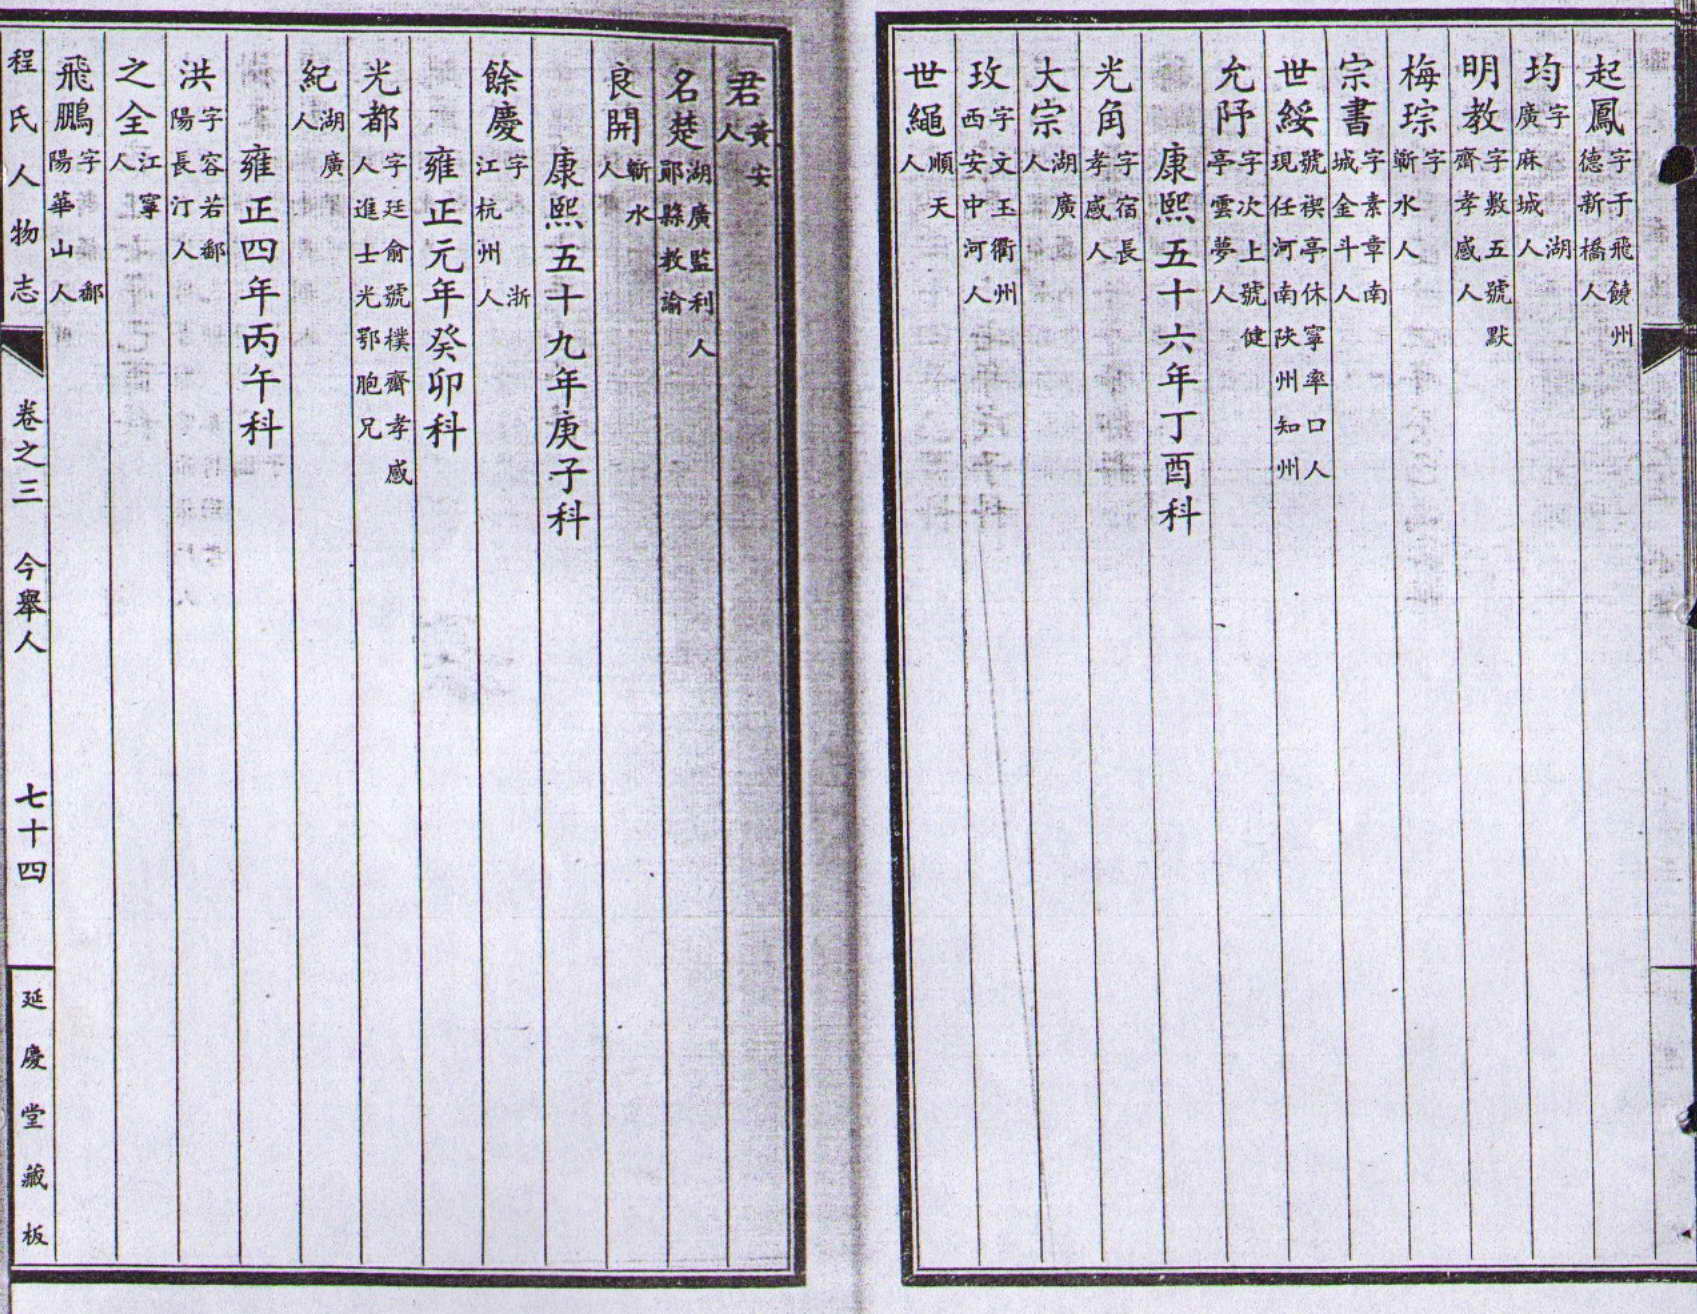 起鳳 字于飛饒州德新橋人
均 字　湖廣麻城人
明教 字敷五號默齋孝感人
梅琮 字　蘄水人
宗書 字素章南城金斗人
世綏 號禊亭休寧率口人現任河南陝州知州
允䧁 字次上號健亭雲夢人
康熙五十六年丁酉科
光角 字宿長孝感人
大宗 湖廣人
玫 字文玉衢州西安中河人
世繩 順天人
君 黃安人
名楚 湖廣監利人鄖縣教諭
良開 蘄水人
康熙五十九年庚子科
餘慶 字　浙江杭州人
雍正元年癸卯科
光都 字廷俞號樸齋孝感人進士光鄂胞兄
紀 湖廣人
雍正四年丙午科
洪 字容若鄱陽長汀人
之全 江寧人
飛鵬 字　鄱陽華山人
程氏人物志 卷之三 今舉人 七十四 延慶堂藏板